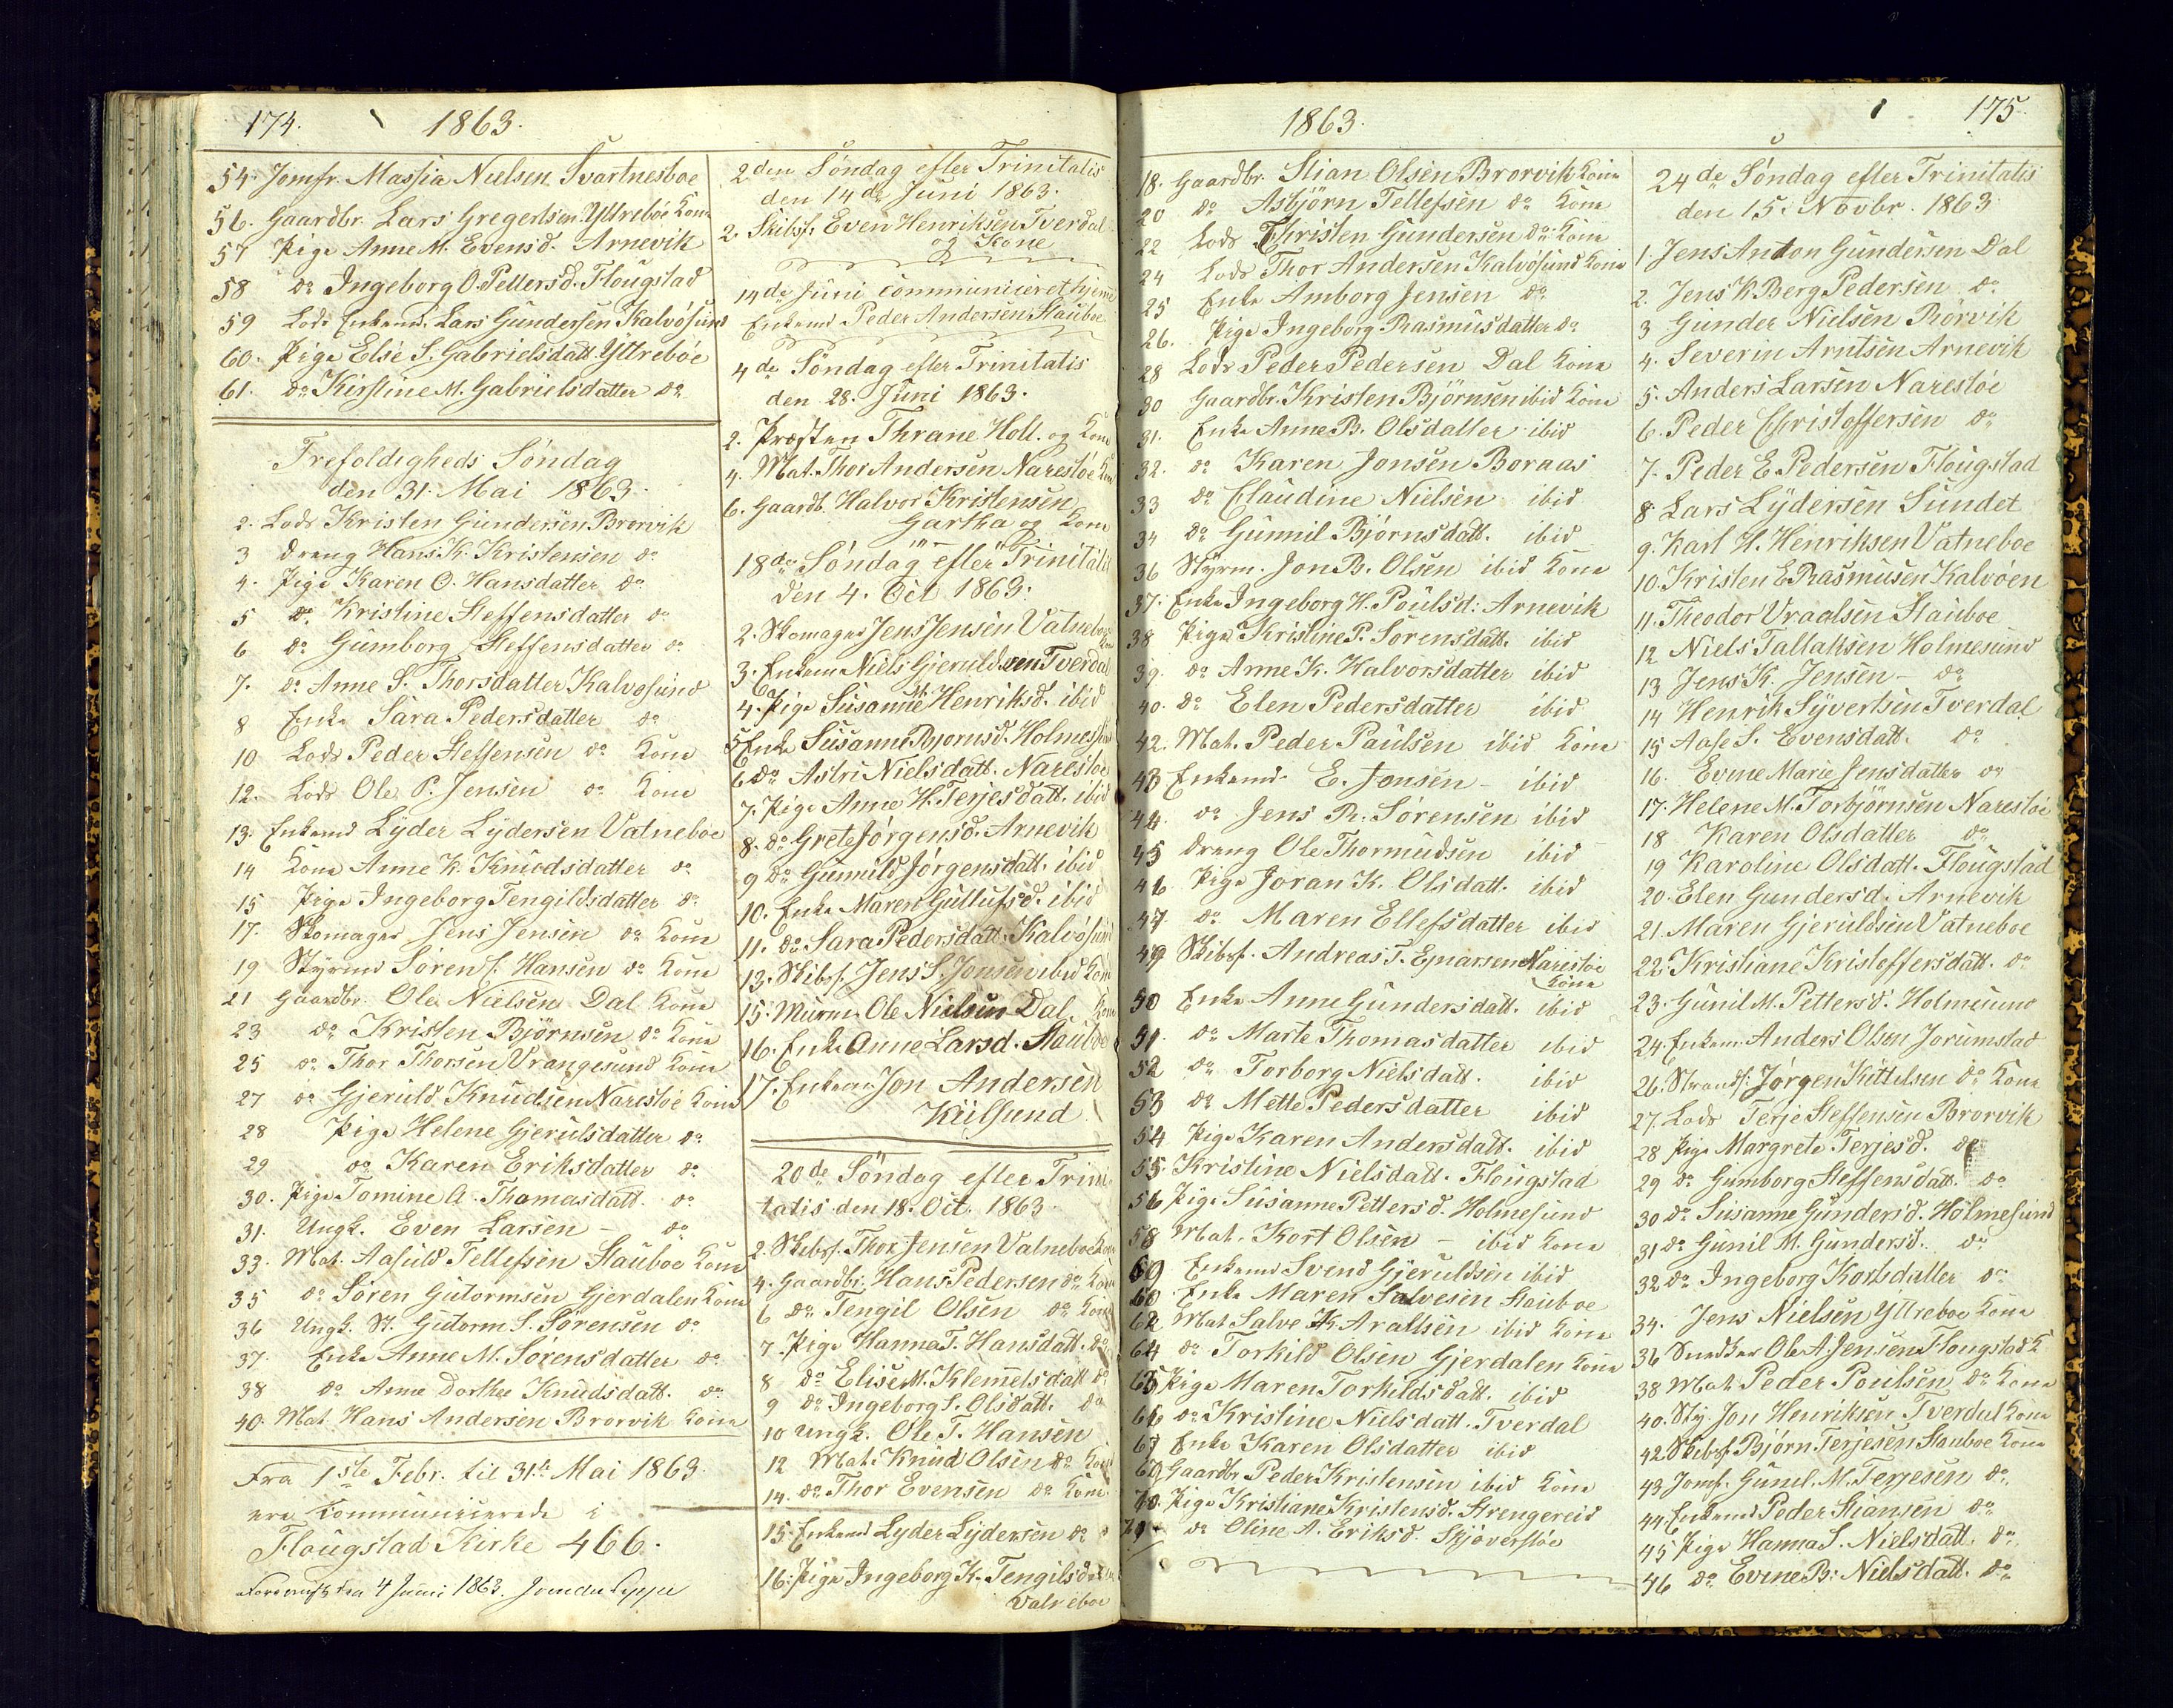 174. 1863.
54. Jomfr. Massia Nielsen Svartnesboe
56. Gaardbr. Lars Gregertsen Yttrebøe Kone
57 Pige Anne M. Evensd. Arnevik
58 do Ingeborg O. Pettersd. Flougstad
59 Lods Enkemd. Lars Gundersen Kalvøsund
60. Pige Else S. Gabrielsdatt. Yttrebøe
61. do Kirstine M. Gabrielsdatter do
Trefoldigheds Søndag
den 31. Mai 1863.
2. Lods Kristen Gundersen Brorvik
3 Dreng Hans K. Kristensen do
4. Pige Karen O. Hansdatter do
5 do Kristine Steffensdatter do
6 do Gumborg Steffensdatter do
7. do Anne S. Thorsdatter Kalvøsund
8 Enke Sara Pedersdatter do
10 Lods Peder Steffensen do Kone
12. Lods Ole P. Jensen do Kone
13. Enkemd Lyder Lydersen Vatneboe
14 Kone Anne K. Knudsdatter do
15 Pige Ingeborg Tengildsdatter do
17. Skomager Jens Jensen do Kone
19 Styrmd Søren S. Hansen do Kone
21 Gaardbr. Ole Nielsen Dal Kone
23 do Kristen Bjørnsen do Kone
25 do Thor Thorsen Vrangesund Kone
27 do Gjeruld Knudsen Narestøe Kone
28 Pige Helene Gjerulsdatter do
29 do Karen Eriksdatter do
30. Pige Tomine A. Thomasdatt. do
31. Ungk. Even Larsen - do
33. Mat. Aasuld Tellefsen Stauboe Kone
35 do Søren Gutormsen Gjerdalen Kone
36 Ungk. St. Gutorm S. Sørensen do
37. Enke Anne M. Sørensdatter do
38 do Anne Dorthee Knudsdatt. do
40. Mat Hans Andersen Brorvik Kone
Fra 1ste Febr. til 31te Mai 1863.
ere Communicerede i
Flougstad Kirke 466.
4 Juni 1863.
2den Søndag efter Trinitatis
den 14de Juni 1863.
2. Skibsf. Even Henriksen Tverdal
og Kone
14de Juni communiceret hjemme
Enkemd Peder Andersen Stauboe
4de Søndag efter Trinitatis
den 28. Juni 1863.
2. Præsten Thrane Holt. og Kone
4. Mat. Thor Andersen Narestøe Kone
6. Gaardb. Halvor Kristensen
Gartha og Kone
18de Søndag efter Trinitatis
den 4. Oct 1863.
2. Skomager Jens Jensen Vatneboe
3. Enkem Niels Gjeruldsen Tverdal
4. Pige Susanne M. Henriksd. ibid
5 Enke Susanne Bjornsd. Holmesund
6 do Astri Nielsdatt. Narestøe
7. Pige Anne H. Terjesdatt. ibid
8. do Grete Jørgensd. Arnevik
9 do Gunnild Jørgensdatt. ibid
10. Enke Maren Gullufsd. ibid
11. do Sara Pedersdatt. Kalvøsund
13. Skibsf. Jens S. Jonsen ibid Kone
15. Murm. Ole Nielsen Dal. Kone
16. Enke Anne Larsd. Stauboe
17. Enkem. Jon Andersen
Kiilsund
20de Søndag efter Trini-
tatis den 18. Oct. 1863.
2. Skibsf. Thor Jensen Vatneboe Kone
4. Gaardbr. Hans Pedersen do Kone
6 do Tengil Olsen do Kone
7. Pige Hanna T. Hansdatt. do
8 do Elise M. Klemetsdatt do
9 do Ingeborg S. Olsdatt. do
10 Ungk. Ole T. Hansen
12 Mat. Knud Olsen do Kone
14. do Thor Evensen do Kone.
15. Enkemd Lyder Lydersen do
16. Pige Ingeborg K. Tengilsdatt.
Vatneboe
1863. 175.
18. Gaardbr. Stian Olsen Brorvik Kone
20 do Asbjørn Tellefsen do Kone
22 Lods Christen Gundersen do Kone
24 Lods Thor Andersen Kalvøsund Kone
25 Enke Amborg Jensen do
26. Pige Ingeborg Rasmusdatter do
28 Lods Peder Pedersen Dal Kone
30 Gaardbr. Kristen Bjørnsen ibid Kone
31. Enke Anne B. Olsdatter ibid
32. do Karen Jonsen Boraas
33 do Claudine Nielsen ibid
34 do Gunnil Bjørnsdatt. ibid
36 Styrm. Jon B. Olsen ibid Kone
37. Enke Ingeborg H. Poulsd. Arnevik
38 Pige Kristine P. Sørensdatt. ibid
39. do Anne K. Halvorsdatter ibid
40. do Elen Pedersdatter ibid
42. Mat. Peder Paulsen ibid Kone
43 Enkemd. E. Jonsen - ibid
44. do Jens R. Sørensen ibid
45 Dreng Ole Thormudsen ibid
46 Pige Joran K. Olsdatt. ibid
47. do Maren Ellefsdatter ibid
49 Skibsf. Andreas T. Ejnarsen Narestøe
Kone
50 Enke Anne Gundersdatt. ibid
51. do Marte Thomasdatter ibid
52 do Torborg Nielsdatt. ibid
53 do Mette Pedersdatter ibid
54 Pige Karen Andersdatt. ibid
55. Kristine Nielsdatt. Flougstad
56 Pige Susanne Pettersd. Holmesund
58 Mat. Kort Olsen - ibid Kone
59 Enkemd Svend Gjeruldsen ibid
60 Enke Maren Salvesen Stauboe
62 Mat Salve K Aratlsen ibid Kone
64 do Torkild Olsen Gjerdalen Kone
65 Pige Maren Torkildsdatt. ibid
66 do Kristine Nielsdatt. Tverdal
67 Enke Karen Olsdatter ibid
69 Gaardbr Peder Kristensen ibid Kone
70. Pige Kristiane Kristensd. Strengereid
71 do Oline A. Eriksd. Skjøverstøe
24de Søndag efter Trinitatis
den 15. Novbr. 1863
1. Jens Anton Gundersen Dal
2. Jens K. Berg Pedersen do
3 Gunder Nielsen Rørvik
4. Severin Arntsen Arnevik
5. Anders Larsen Narestøe
6. Peder Christoffersen do
7. Peder E. Pedersen Flougstad
8 Lars Lydersen Sundet
9. Karl H. Henriksen Vatneboe
10. Kristen E. Rasmusen Kalvøen
11. Theodor Vraalsen Stauboe
12 Niels Tallaksen Holmesund
13 Jens K. Jensen - do
14 Henrik Syvertsen Tverdal
15 Aase S. Evensdatt. do
16. Evine Marie Jensdatter do
17. Helene M. Torbjørnsen Narestøe
18 Karen Olsdatter do
19 Karoline Olsdatt. Flougstad
20. Elen Gundersd. Arnevik
21 Maren Gjeruldsen Vatneboe
22. Kristiane Kristoffersdatt. do
23. Gunil M. Pettersd. Holmesund
24. Enkem. Anders Olsen Jorumstad
26. Strandf. Jørgen Kittelsen do Kone
27. Lods Terje Steffensen Brorvik
28 Pige Margrete Terjesd. do
29 do Gumborg Steffensdatt. do
30 do Susanne Gundersd. Holmesund
31 do Gunil M. Gundersd. do
32 do Ingeborg Kortsdatter do
34. Jens Nielsen Yttreboe Kone
36 Snedker Ole A. Jensen Flougstad K
38 Mat. Peder Poulsen do Kone
40. Sty. Jon Henriksen Tverdal Kone
42 Skibsf. Bjørn Terjesen Stauboe Kone
43 Jomf. Gunil. M. Terjesen do
44. Enkemd Peder Stiansen do
45 Pige Hanna S. Nielsdatt. do
46 do Evine B. Nielsdatt. do